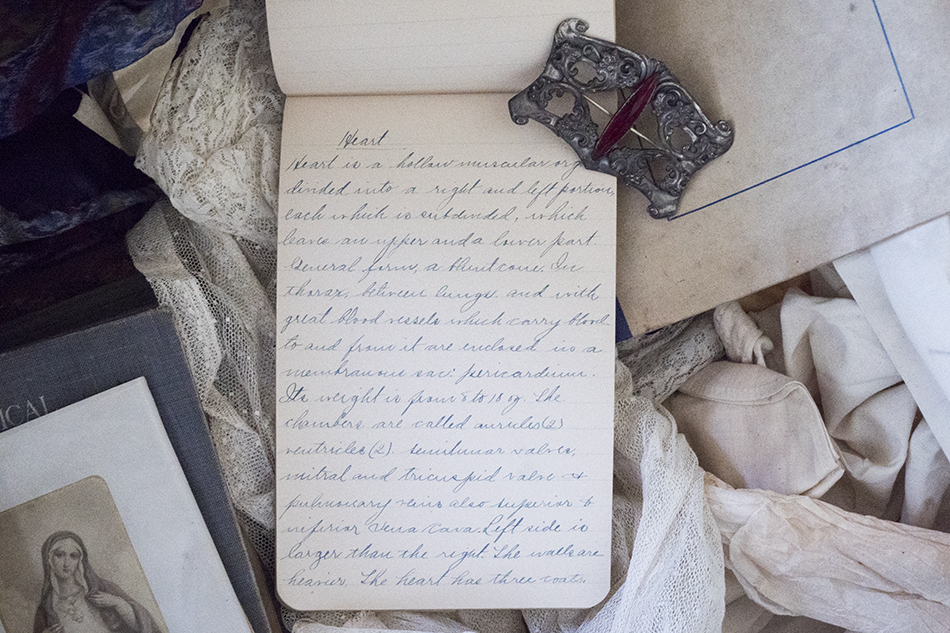 Heart
Heart is a hollow muscular org
divided into a right and left portion,
each which is subdivided, which
leaves an upper and a lower part.
General form, a blunt cone. In
thorax, between lungs and with
great blood vessels which carry blood
to and from it are enclosed in a
membranous sac: pericardium.
Its weight is from 8 to 10 oz. The
chambers are called auricles (2)
ventricles (2). semilunar valves,
mitral and tricuspid valve &
pulmonary veins also superior &
inferior Vena Cava. Left side is
larger than the right. The walls are
heavier. The heart has three coats.
ICAL